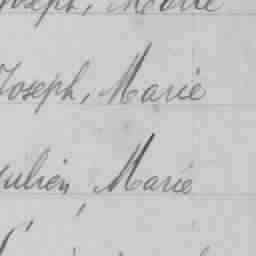 Joseph, Marie
Joseph, Marie
Julien, Marie